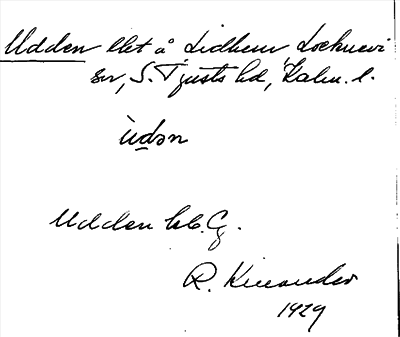 Udden lht å Lidhem, Locknevi
sn, S. Tjusts hd, Kalm. l.
ùdən
Udden hb. G.
R. Kinander
1929